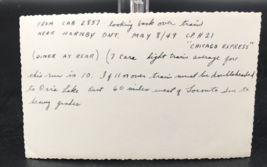 FROM CAB 2857 looking back over train
NEAR HORNBY ONT. MAY 8/49 CP #21
"CHICAGO EXPRESS"
(DINER AT REAR) (7 cars light train average for
this run is 10. If 11 or over train must be doubleheaded
to Orrs Lake but 60 miles west of Toronto due to
heavy grades